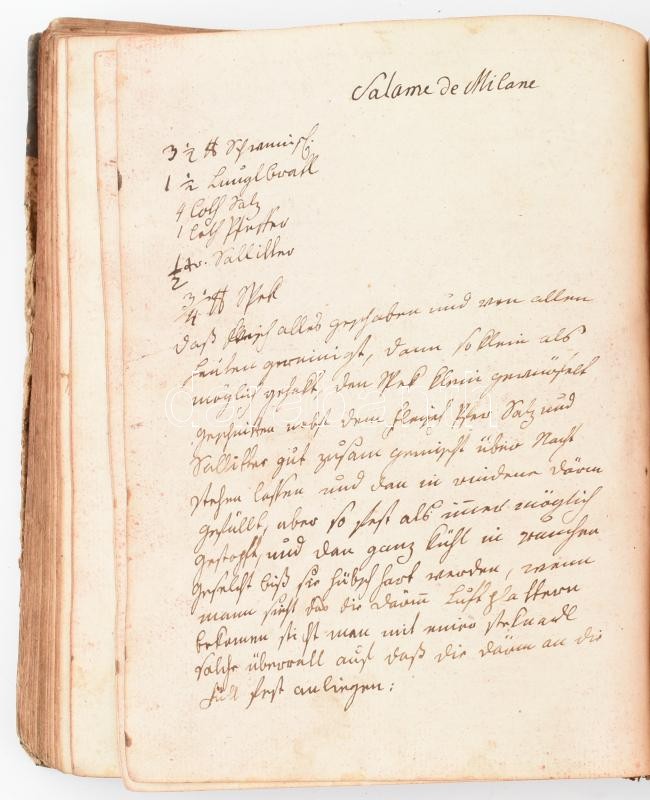 Salame de Milane
3 ½ ℔ Schweinsfl:
1 ½ Lunglbratl
4 loth Salz
1 loth Pfeffer
½ dto. Salliter
3/4 ℔ Spek
Daß fleisch alles geschaben und von allen
heüten gereinigt, dann so klein als
möglich gehakt, den Spek klein gewürfelt
geschnitten nebst dem fleisch Pfef Salz und
Salliter gut zusam gemischt über Nacht
stehen lassen und dan in rindene därm
gefüllt, aber so fest als immer möglich
gestopft, und dan ganz kühl in rauchen
geselcht biß sie hübsch hart werden, wenn
mann sieht das die därm Luftplattern
bekomen sticht man mit einer steknadl
solche überall auf daß die därm an die
füll fest anliegen: